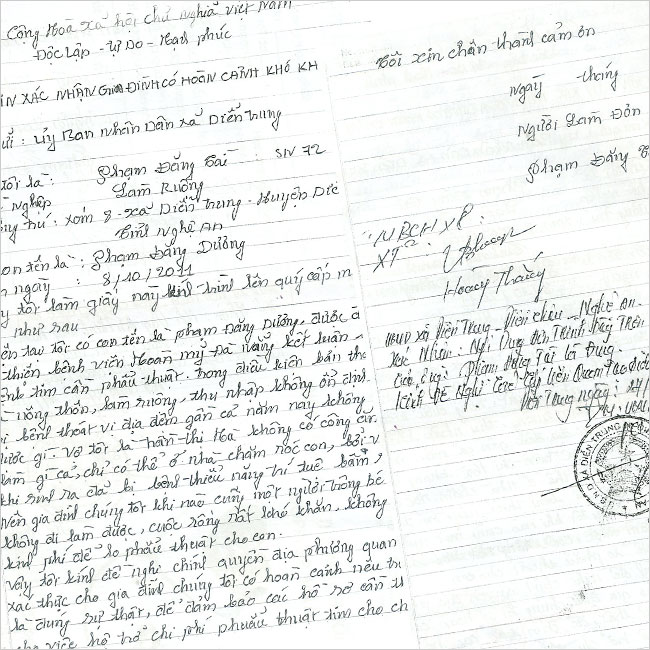 Cộng Hoà xã hội chủ nghĩa việt Nam
Độc Lập - Tự Do - Hạnh phúc
XÁC NHẬN GIA ĐÌNH CÓ HOÀN CẢNH KHÓ KH
: Uỷ Ban Nhân Dân xã Diễn Trung
tôi là : Phạm Đăng Tài : SN 72
nghiệp Làm Ruộng
trú : xóm 8 - xã Diễn Trung - Huyện Diễ
Tỉnh Nghệ An
con tên là : Phạm Đăng Dương
ngày : 8/10/2011
tôi làm giấy này kính trình lên quý cấp
như sau
tôi có con tên là phạm Đăng Dương, được
thiện bệnh viện Hoàn mỹ Đà nẵng kết luận
tim cần phẫu thuật. Trong điều kiện bản th
nông thôn, làm ruộng, thu nhập không ổn định
bệnh thoát vị đĩa đệm gần cả năm nay không
được gì - vợ tôi là hầm thị Hà không có công ăn
làm gì cả, chỉ có thể ở nhà chăm nóc con, bởi v
khi sinh ra đã bị bệnh thiểu năng trí tuệ bẩm
nên gia đình chúng tôi khi nào cũng một người trông bé
không đi làm được, cuộc sống rất khó khăn, không
kinh phí để lo phẫu thuật cho con.
vậy tôi kính đề nghị chính quyền địa phương quan
xác thực cho gia đình chúng tôi có hoàn cảnh nêu tr
là đúng sự thật, để đảm bảo các hồ sơ cần th
cho việc hỗ trợ chi phí phuẫu thuật tim cho ch
Tôi xin chân thành cảm ơn
ngày tháng
Người Làm Đơn
Phạm Đăng T
"NBCH XP.
Hoàng Thằng
UBND xã Diễn Trung - Diễn châu - Nghệ An.
Xác Nhận : Nội Dung Trình Bày Trên
Của Ông : Phạm Đăng Tài là Đúng.
Kính Đề Nghị Các Cấp Quan Tâm
Diễn Trung ngày
U.B.N.D XÃ DIỄN TRUNG